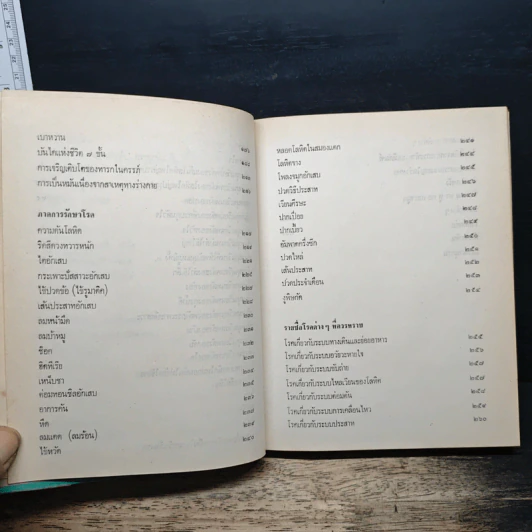 เบาหวาน
บันไดแห่งชีวิต ๗ ขั้น
การเจริญเติบโตของทารกในครรภ์
การเป็นหมันเนื่องจากสาเหตุทางร่างกาย
ภาคการรักษาโรค
ความดันโลหิต
ริดสีดวงทวารหนัก
ไตอักเสบ
กระเพาะปัสสาวะอักเสบ
ไข้ปวดข้อ (ไข้รูมาติค)
เส้นประสาทอักเสบ
ลมหน้ามืด
ลมบ้าหมู
ช็อค
ฮิสทีเรีย
เหน็บชา
ต่อมทอนซิลอักเสบ
อาการคัน
หืด
ลมแดด (ลมร้อน)
ไข้หวัด
หลอดโลหิตในสมองแตก ๒๔๑
โลหิตจาง ๒๔๔
โพรงจมูกอักเสบ ๒๔๕
ปวดวิถีประสาท
เวียนศีรษะ ๒๔๗
ปากเปื่อย ๒๔๘
ปากเบี้ยว ๒๔๙
อัมพาตครึ่งซีก ๒๕๐
ปวดไหล่ ๒๕๑
เส้นประสาท ๒๕๒
ปวดประจำเดือน ๒๕๓
งูพิษกัด ๒๕๔
รายชื่อโรคต่างๆ ที่ควรทราบ
โรคเกี่ยวกับระบบทางเดินและย่อยอาหาร ๒๕๕
โรคเกี่ยวกับระบบอวัยวะหายใจ ๒๕๖
โรคเกี่ยวกับระบบขับถ่าย ๒๕๗
โรคเกี่ยวกับระบบไหลเวียนของโลหิต ๒๕๗
โรคเกี่ยวกับระบบต่อมต้น ๒๕๘
โรคเกี่ยวกับระบบการเคลื่อนไหว ๒๕๙
โรคเกี่ยวกับระบบประสาท ๒๖๐